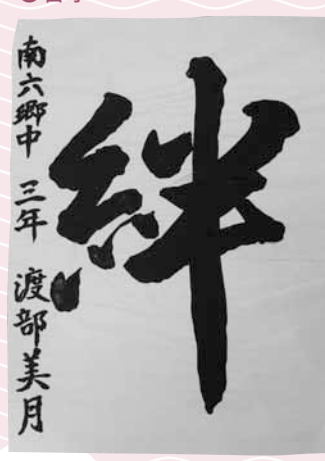 絆
南六郷中 三年 渡部美月